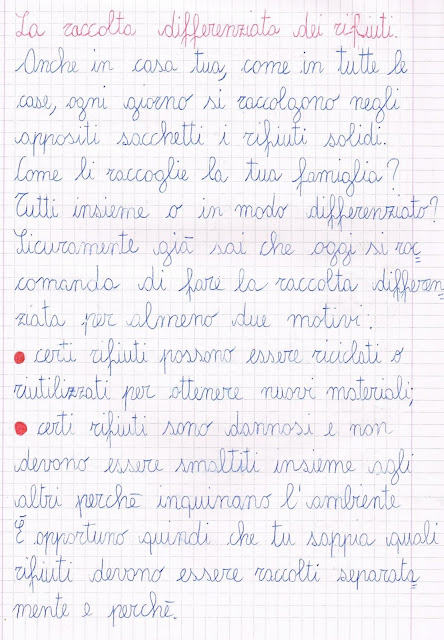 La raccolta differenziata dei rifiuti.
Anche in casa tua, come in tutte le
case, ogni giorno si raccolgono negli
appositi sacchetti i rifiuti solidi.
Come li raccoglie la tua famiglia?
Tutti insieme o in modo differenziato?
Sicuramente già sai che oggi si rac=
comanda di fare la raccolta differen=
ziata per almeno due motivi:
● certi rifiuti possono essere riciclati o
riutilizzati per ottenere nuovi materiali;
● certi rifiuti sono dannosi e non
devono essere smaltiti insieme agli
altri perchē inquinano l'ambiente
È opportuno quindi che tu sappia quali
rifiuti devono essere raccolti separata=
mente e perchē.